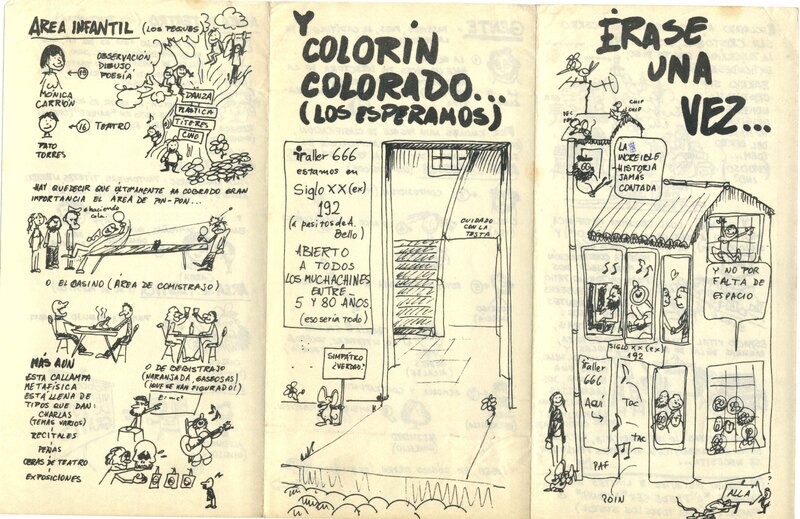 AREA INFANTIL (LOS PEQUES)
OBSERVACIÓN
DIBUJO,
POESÍA
MÓNICA
CARRIÓN
16
TEATRO
PATO
TORRES
DANZA
PLÁSTICA
TITERES
CINE
HAY QUE DECIR QUE ÚLTIMAMENTE HA COBRADO GRAN
IMPORTANCIA EL AREA DE PIN-PON...
haciendo
cola
O EL CASINO (ÁREA DE COMISTRAJO)
MÁS AUN
ESTA CALLAMPA
METAFÍSICA
ESTÁ LLENA DE
TIPOS QUE DAN:
CHARLAS
(TEMAS VARIOS)
RECITALES
PEÑAS
OBRAS DE TEATRO
EXPOSICIONES
O DE BEBISTRAJO
(NARANJADA, GASEOSAS)
(¡QUÉ SE HAN FIGURADO!)
E=mc²
Y
COLORÍN
COLORADO...
(LOS ESPERAMOS)
Taller 666
estamos en
Siglo XX (ex)
192
(a pasitos de A.
Bello)
ABIERTO
A TODOS
LOS MUCHACHINES
ENTRE
5 Y 80 AÑOS
(eso sería todo)
CUIDADO
CON LA
TESTA
SIMPÁTICO
¿VERDAD?
ÉRASE
UNA
VEZ...
CHIP
CHIP
LA
INCREIBLE
HISTORIA
JAMÁS
CONTADA
Y NO POR
FALTA DE
ESPACIO
SIGLO XX (EX)
192
Taller
666
AQUÍ
TOC
TAC
PAF
POIN
ALLA